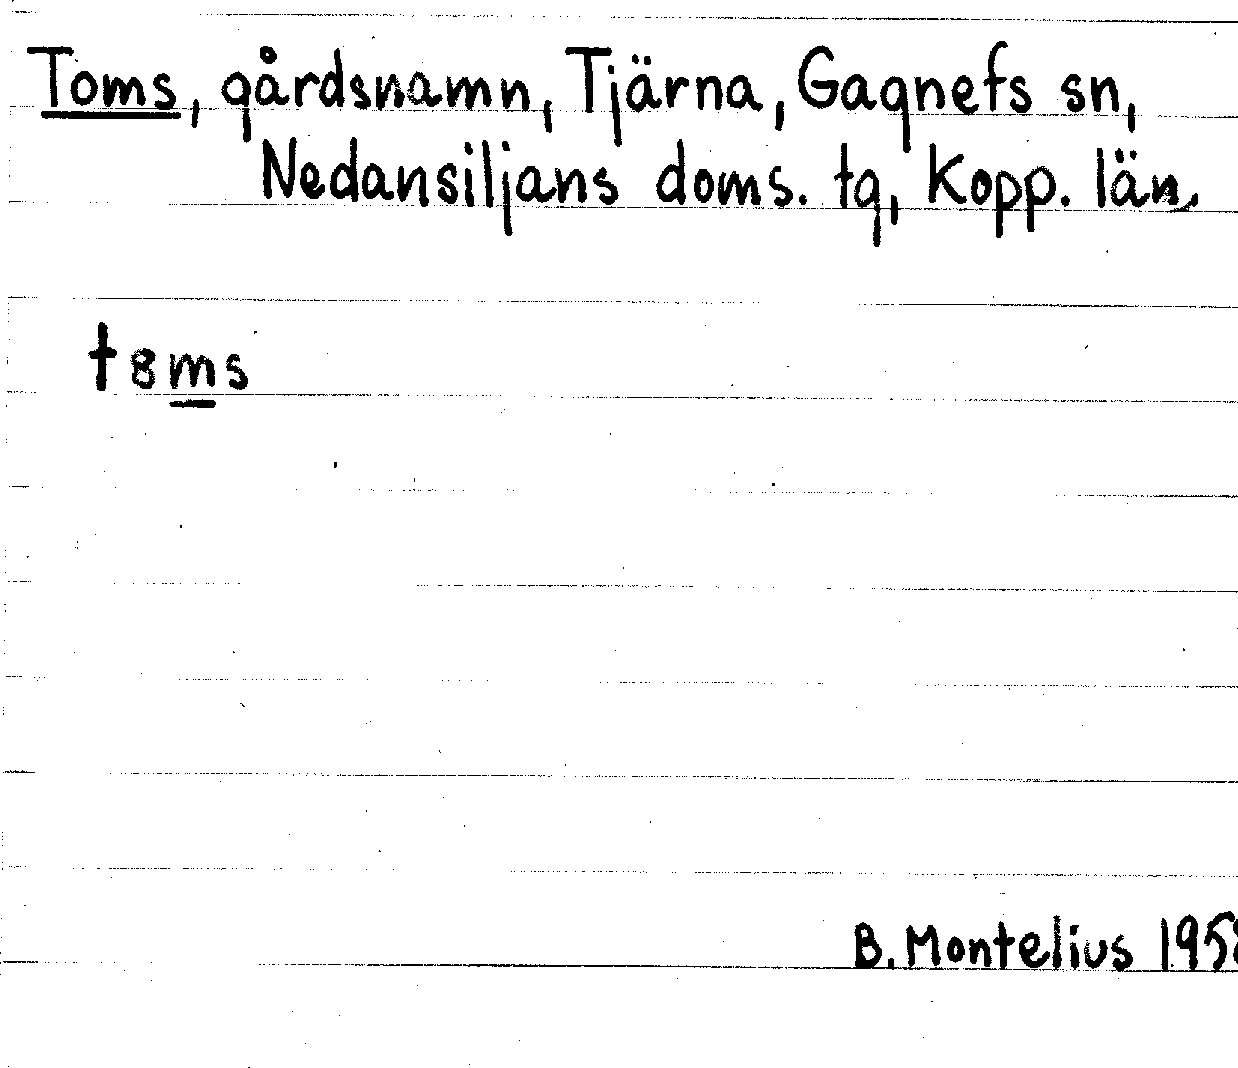 Toms, gårdsnamn, Tjärna, Gagnefs sn,
Nedansiljans doms. tg, Kopp. län.
t8ms
B. Montelius 1958